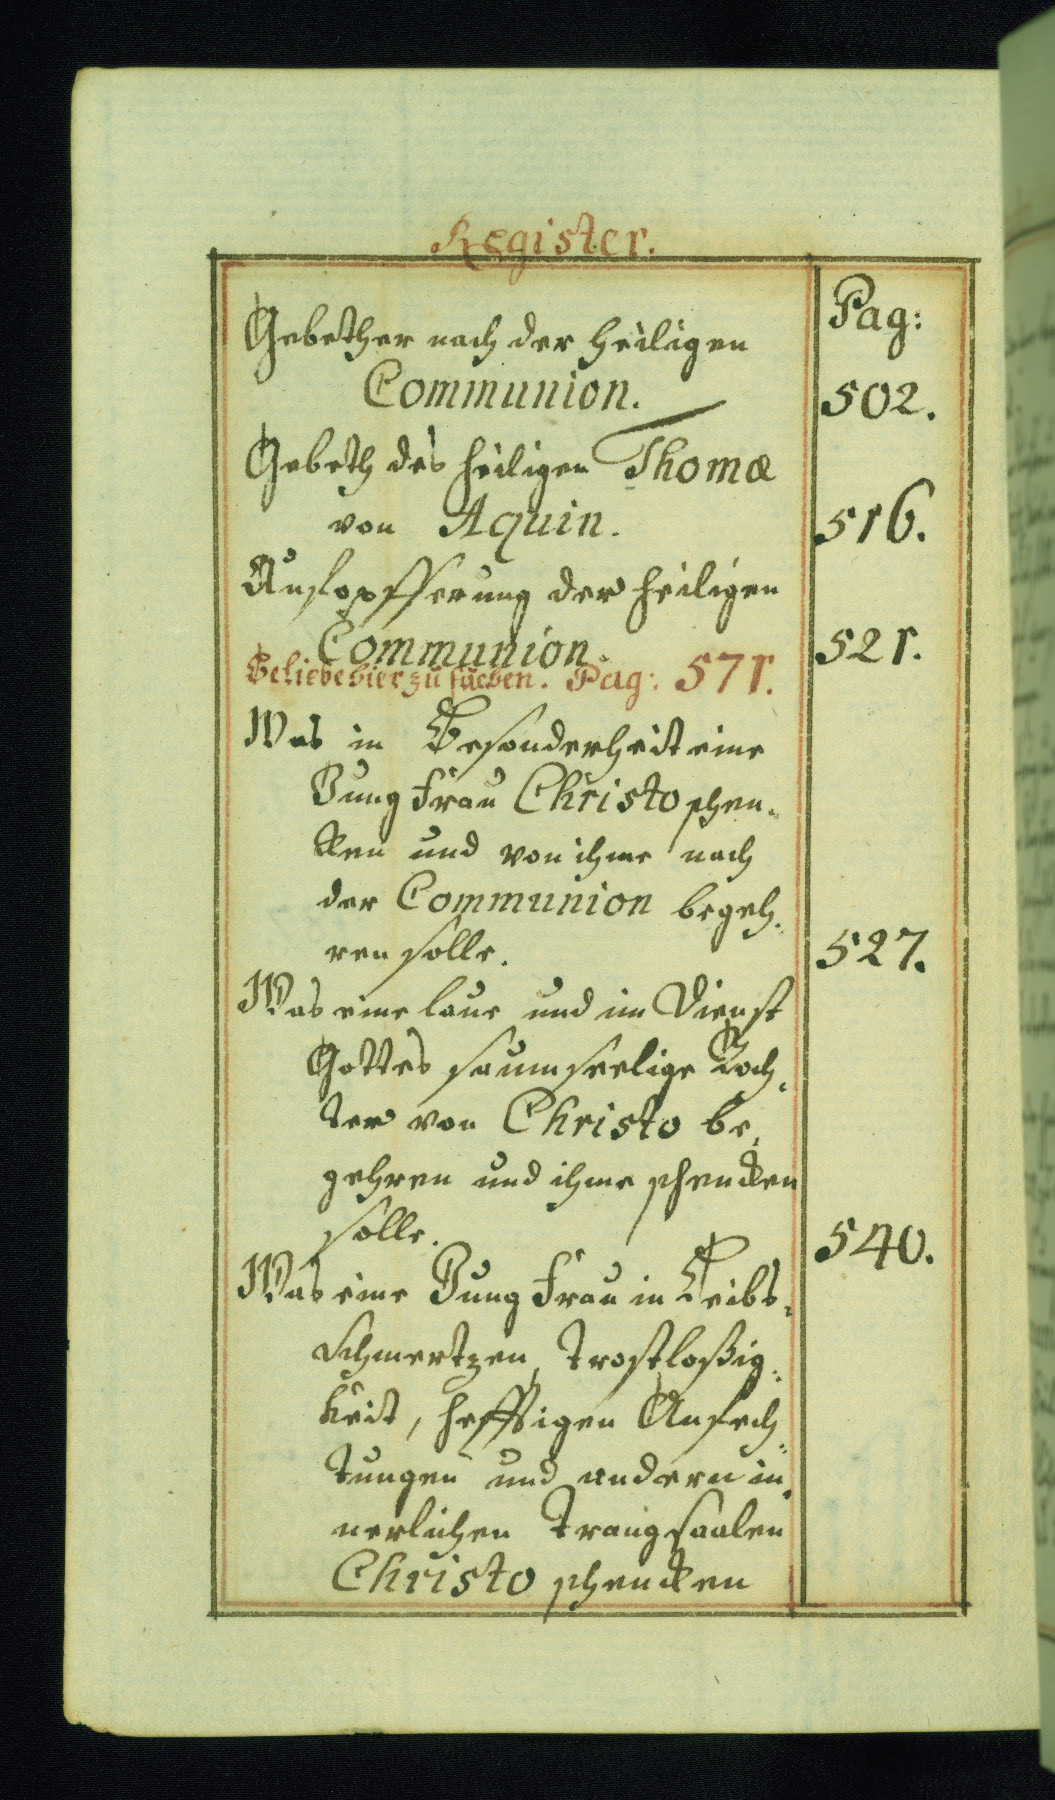 Register.
Pag:
Gebether nach der heiligen
Communion. 502.
Gebeth des heiligen Thomæ
von Aquin. 516.
Aufopfferung der heiligen
Communion. 521.
Beliebe hier zu suchen. Pag: 571.
Was in Besonderheit eine
Jungfrau Christo schen„
cken und von ihme nach
der Communion begeh„
ren solle. 527.
Was eine laue und im Dienst
Gottes saumseelige Toch„
ter von Christo be„
gehren und ihme schencken
solle. 540.
Was eine Jungfrau in Leibs„
Schmertzen, Trostloßig„
keit, hefftigen Anfech„
tungen und andern in„
nerlichen Trangsaalen
Christo schencken